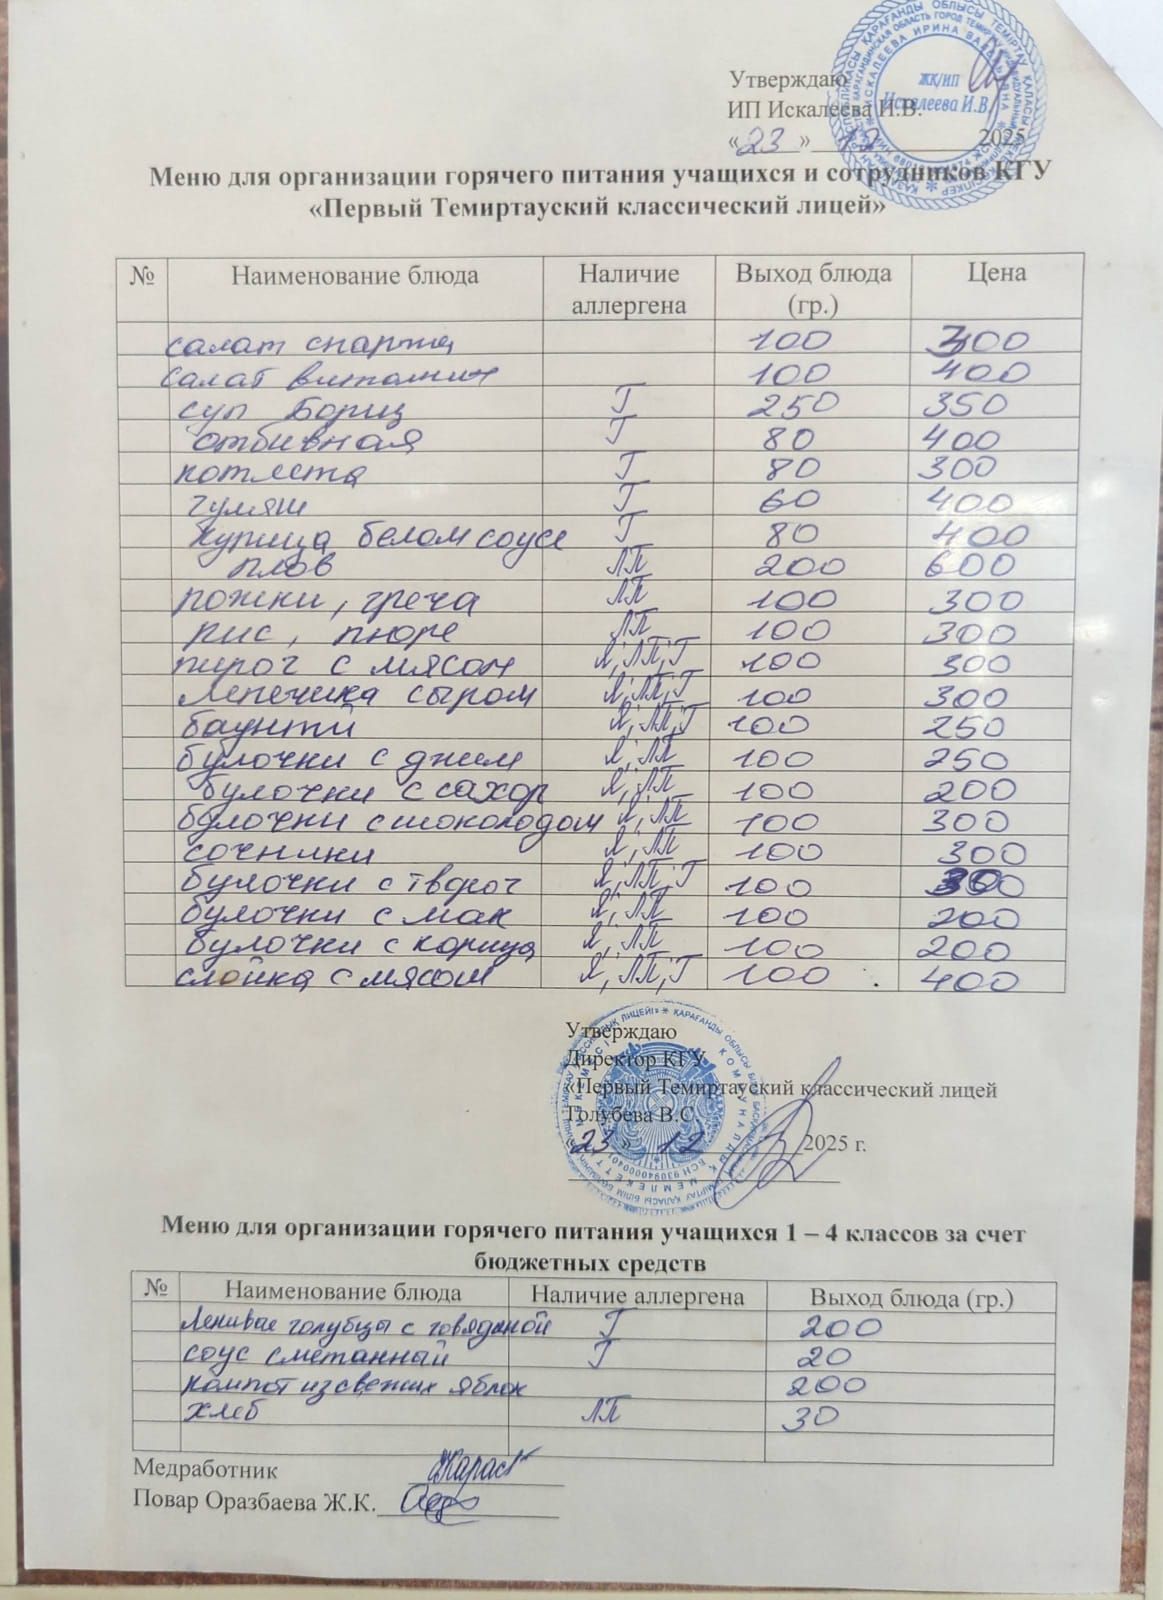 Утверждаю
ИП Искалеева И.В.
ЖК/ИП
Искалеева И.В.
«23» 12 2025
Меню для организации горячего питания учащихся и сотрудников КГУ
«Первый Темиртауский классический лицей»
№ Наименование блюда Наличие аллергена Выход блюда (гр.) Цена
салат спаржа 100 300
салат витамин 100 400
суп Борщ Г 250 350
отбивная Г 80 400
котлета Г 80 300
гуляш Г 60 400
курица белом соусе Г 80 400
плов ЛП 200 600
рожки, греча ЛП 100 300
рис, пюре ЛП 100 300
пирог с мясом Я, ЛП, Г 100 300
лепечика сыром Я, ЛП, Г 100 300
баунти Я, ЛП, Г 100 250
булочки с джем Я, ЛП 100 250
булочки с сахор Я, ЛП 100 200
булочки с шоколодом Я, ЛП 100 300
сочники Я, ЛП 100 300
булочки с творог Я, ЛП, Г 100 300
булочки с мак Я, ЛП 100 200
булочки с корица Я, ЛП 100 200
слойка с мясом Я, ЛП, Г 100 400
Утверждаю
Директор КГУ
«Первый Темиртауский классический лицей
Голубева В.С.
«23» 12 2025 г.
Меню для организации горячего питания учащихся 1 – 4 классов за счет
бюджетных средств
№ Наименование блюда Наличие аллергена Выход блюда (гр.)
Ленивые голубцы с говядиной Г 200
соус сметанный Г 20
компот из свежих яблок 200
хлеб ЛП 30
Медработник
Повар Оразбаева Ж.К.